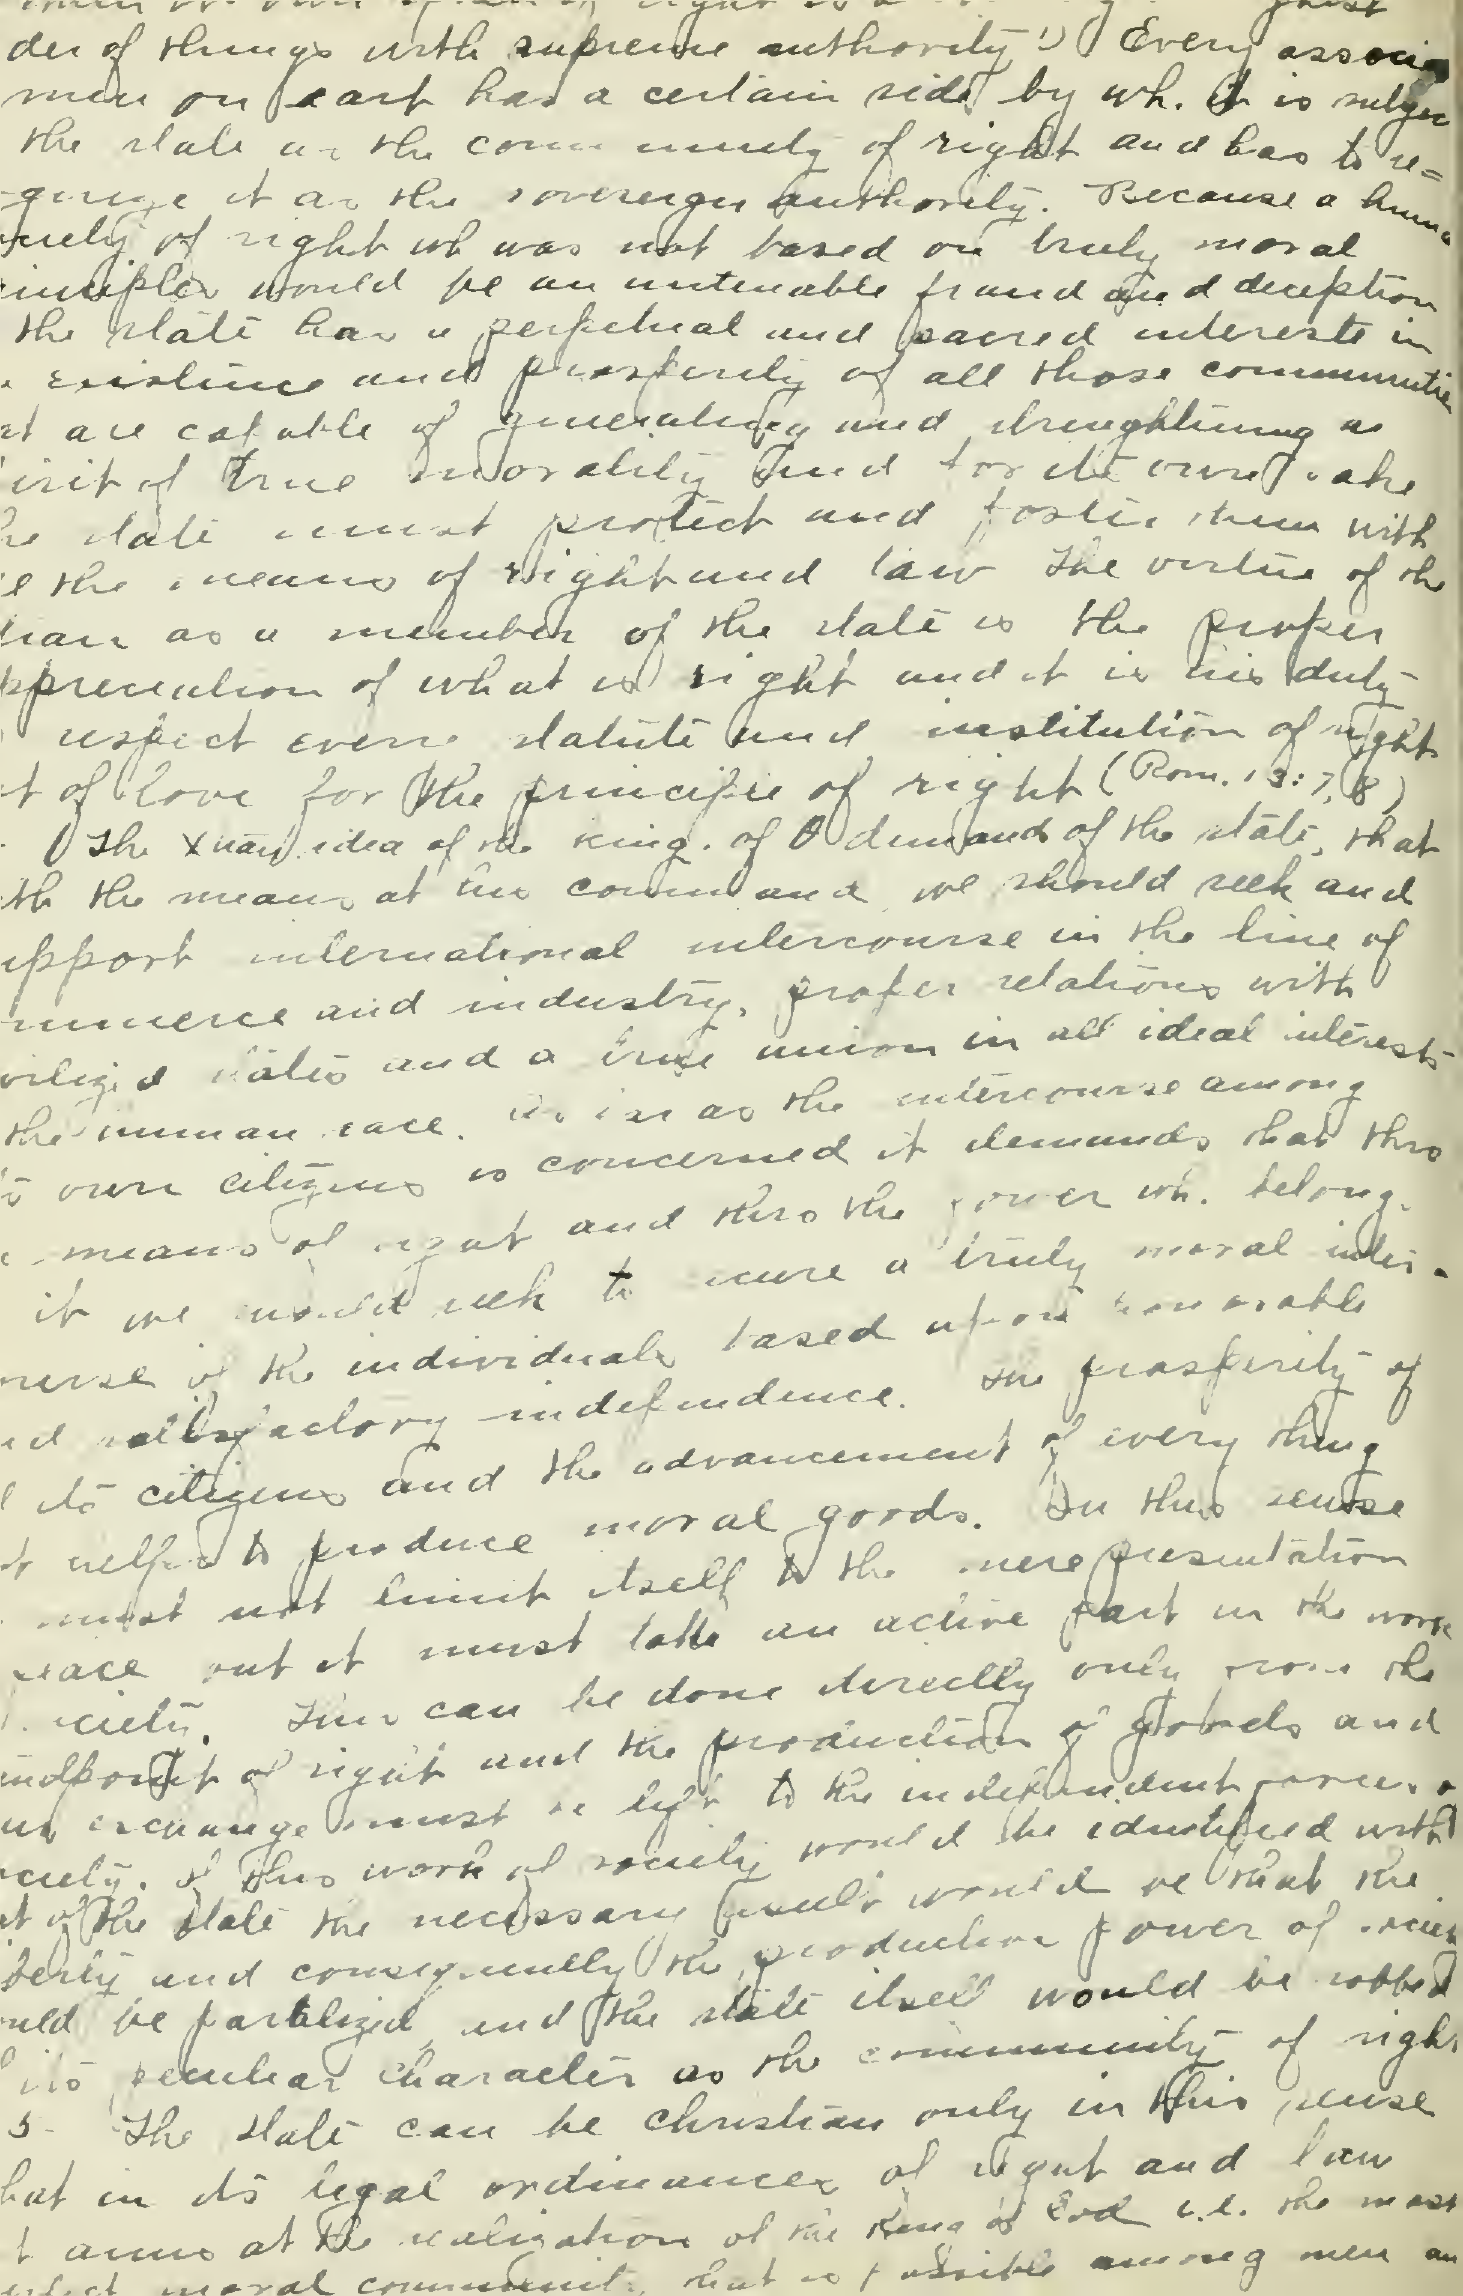 der of things with supreme authority 1) Every associa
men on eart has a certain side by wh. it is subjec
the state as the community of right and has to re=
it as the sovereign authority. Because a huma
of right wh was not based on truly moral
inciples would be an untenable fraud and deception
the state has a perpetual and sacred interests in
existence and prosperity of all those communities
at are capable of generating and strenghtening as
irit of true morality and for its own sake
he state must protect and foster them with
the means of right and law The virtue of the
as a member of the state is the proper
ppreciation of what is right and it is his duty
respect every statute and institution of right
t of love for the principle of right (Rom. 13:7,8)
The Xnan idea of the king. of θ demands of the state, that
th the means at his command we should seek and
upport international intercourse in the line of
mmerce and industry, proper relations with
vilized states and a true union in all ideal interests
the human race. as far as the intercourse among
its own citizens is concerned it demands that thro
means of right and thro the power wh. belong.
it we would seek to secure a truly moral inter-
ourse of the individuals based upon honorable
nd satisfactory independence. The prosperity of
its citizens and the advancement of every thing
helps to produce moral goods. In this sense
must not limit itself to the mere presentation
peace but it must take an active part in the work
ciety. This can be done directly only from the
andpoint of right and the production of goods and
exchange must be left to the independent forces o
ciety. If this work of society would be identified with
at of the state the necessary result would be that the
berty and consequently the production power of societ
ould be paralized and the state itself would be robbed
its peculiar character as the community of right
5 The state can be christian only in this sense
hat in its legal ordinances of right and law
t aims at the realization of the King of God i.e. the most
moral community that is possible among men an